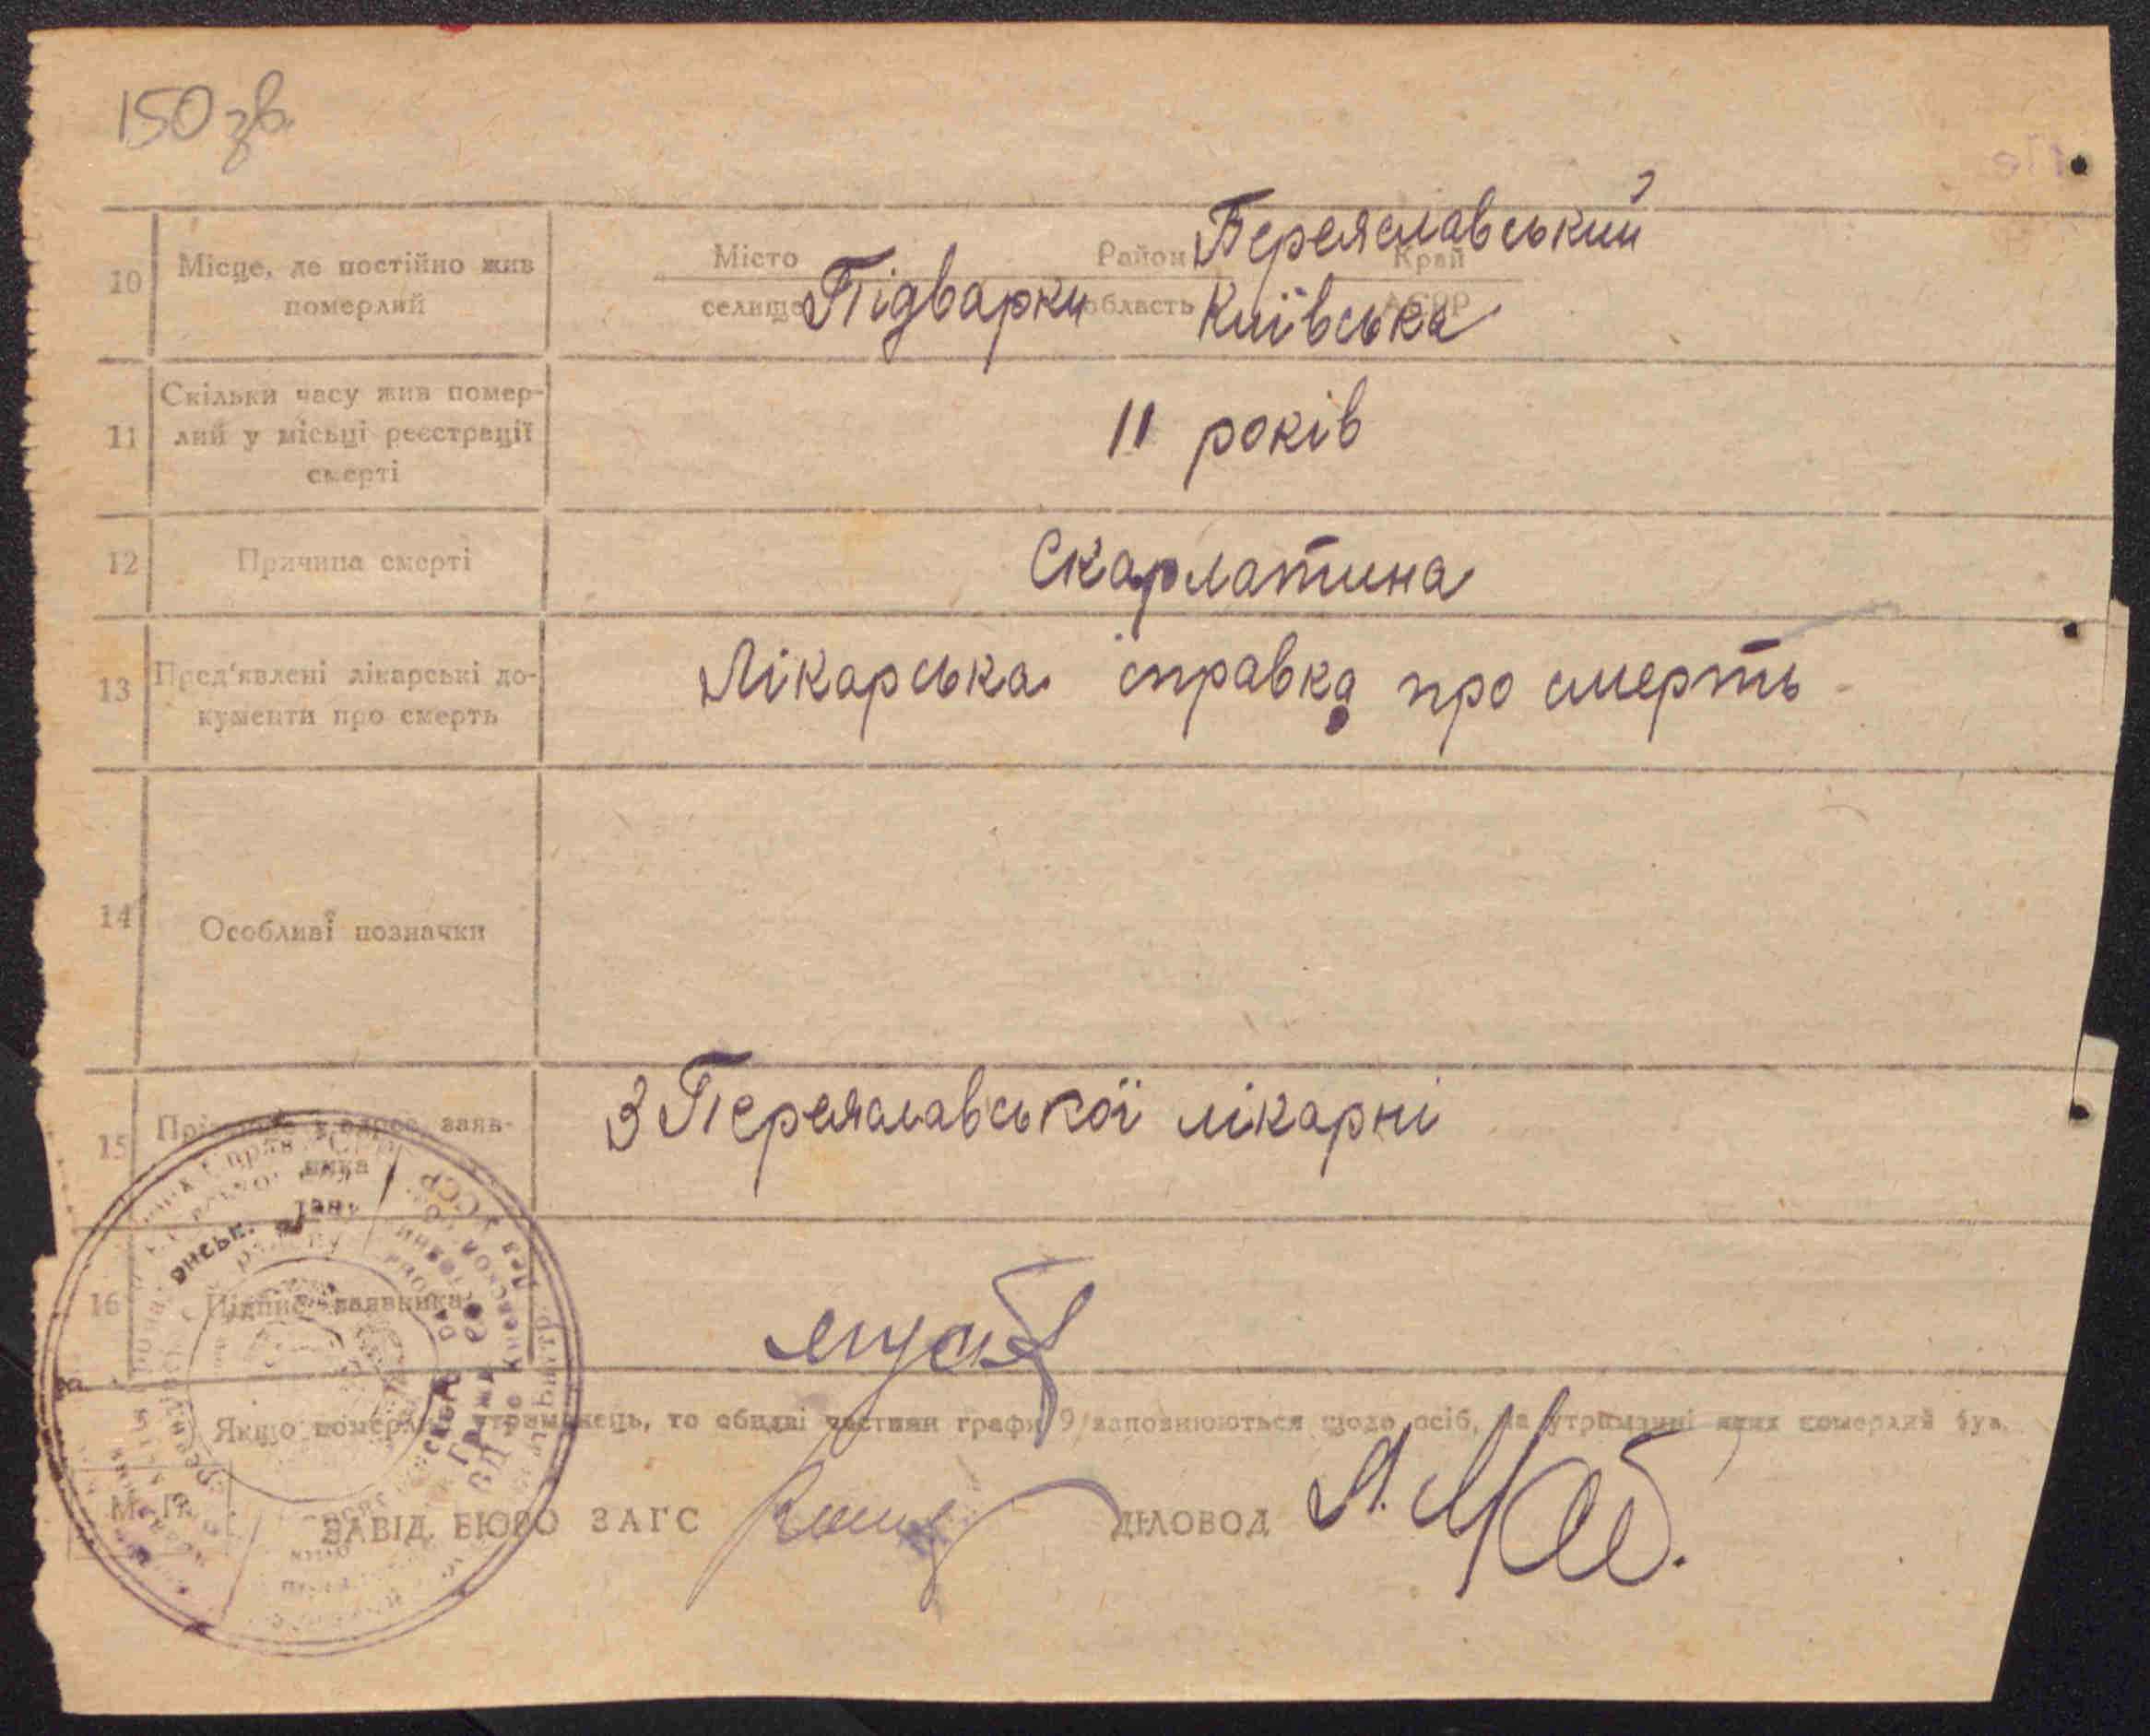 150 зв.
10 Місце, де постійно жив померлий
Місто селище Підварки
Район Переяславський Край
область Київська АСРР
11 Скільки часу жив помер-
лий у місьці реєстрації
смерті
11 років
12 Причина смерті
Скарлатина
13 Пред'явлені лікарські до-
кументи про смерть
Лікарська справка про смерть
14 Особливі позначки
15 адрес заяв-
ника
З Переяславської лікарні
16 Підпис заявника
Якщо померлий утриманець, то обидві частини графи 9 заповнюються щодо осіб, на утриманні яких померлий був.
М. П.
ЗАВІД. БЮРО ЗАГС
ДІЛОВОД